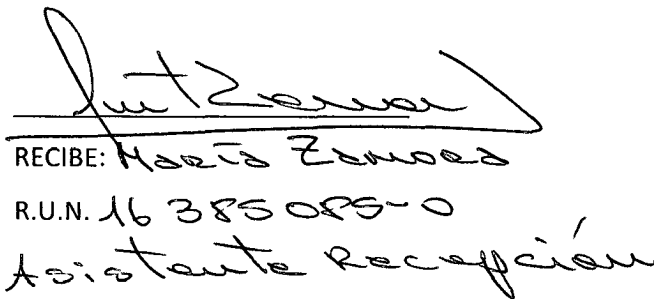 RECIBE: María Zamora
R.U.N. 16 385 085-0
Asistente Recepción